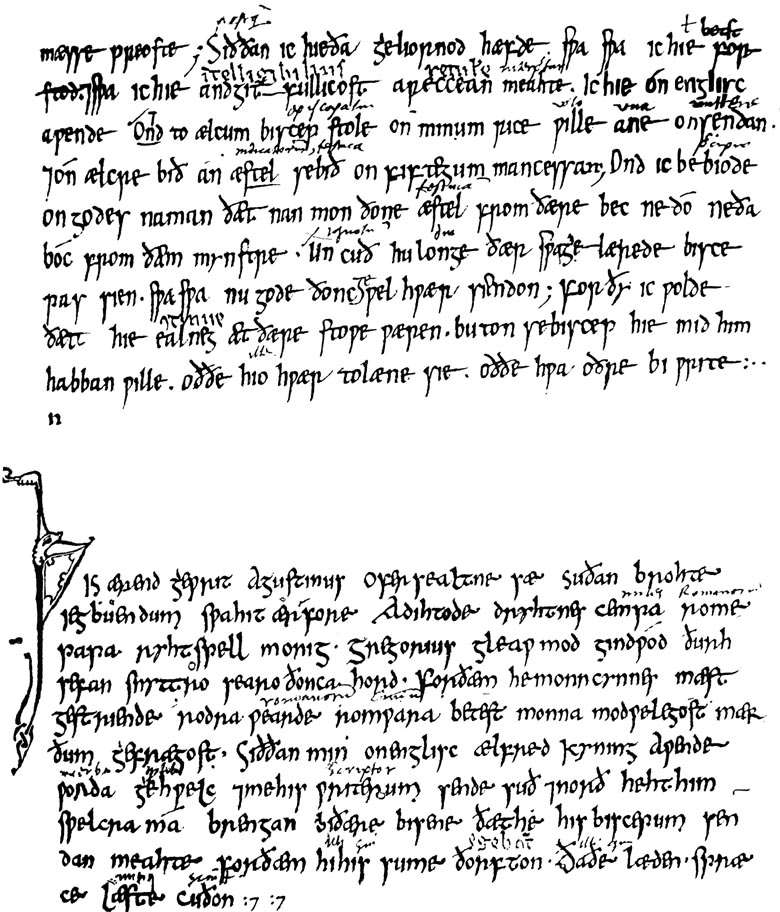 mæsse preoste ; Siððan ic hie ða geliornod hæfde . sƿa sƿa ic hie for
stod ⁊ sƿa ic hie andgitfullicost areccean meahte . Ic hie on englisc
aƿende Ond to ælcum biscep stole on minum rice ƿille ane onsendan .
⁊ on ælcre bið an æstel se bið on fiftegum mancessan ; Ond ic bebiode
on godes naman ðæt nan mon ðone æstel from ðære bec ne do ne ða
boc from ðæm mynstre . Uncuð hu longe ðær sƿæ gelærede bisce
pas sien . sƿa sƿa nu gode ðonc ƿel hƿær siendon ; For ðy ic ƿolde
ðætt hie ealneg æt ðære stoƿe ƿæren . buton se biscep hie mid him
habban ƿille . oððe hio hƿær to læne sie . oððe hƿa oðre bi ƿrite :.
Þis ærend geƿrit Agustinus ofer sealtne sæ suðan brohte
iegbuendum sƿa hit ær fore adihtode dryhtnes cempa rome
papa . ryhtspell monig . Gregorius gleaƿ mod gindƿod ðurh
sefan snyttro searo ðonca hord . Forðæm he monncynnes mæst
gestriende rodra ƿearde romƿara betest monna modƿelegost mær
ðum gefrægost . Siððan min on englisc ælfred kyning aƿende
ƿorda gehƿelc ⁊ me his ƿriterum sende suð ⁊ norð heht him
sƿelcra ma brengan bi ðære bisene ðæt he his biscepum sen
dan meahte forðæm hi his sume ðorfton . ða ðe læden . spræ
ce læste cuðon :⁊ :⁊